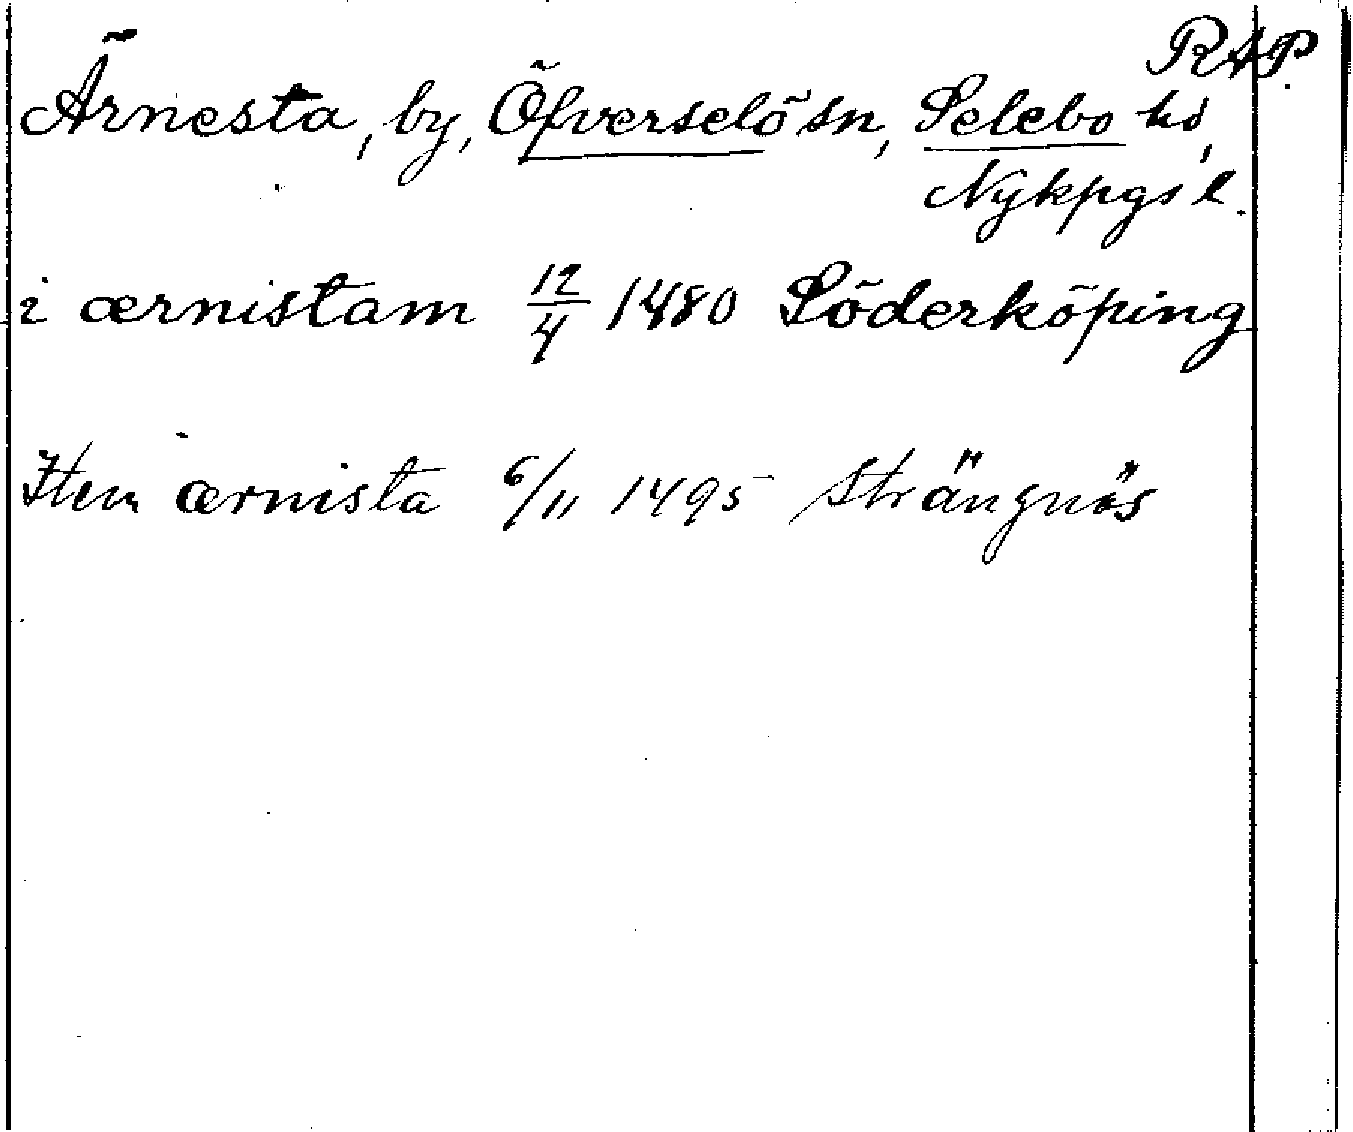 RAP.
Ärnesta, by, Öfverselö sn, Selebo hd,
Nykpgs l.
i ærnistam 12/4 1480 Söderköping
Item ærnista 6/11 1495 Strängnäs